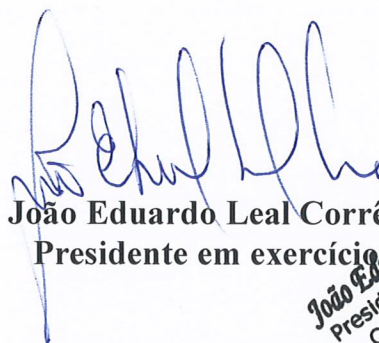 João Eduardo Leal Corrê
Presidente em exercício
João Ed
Presid